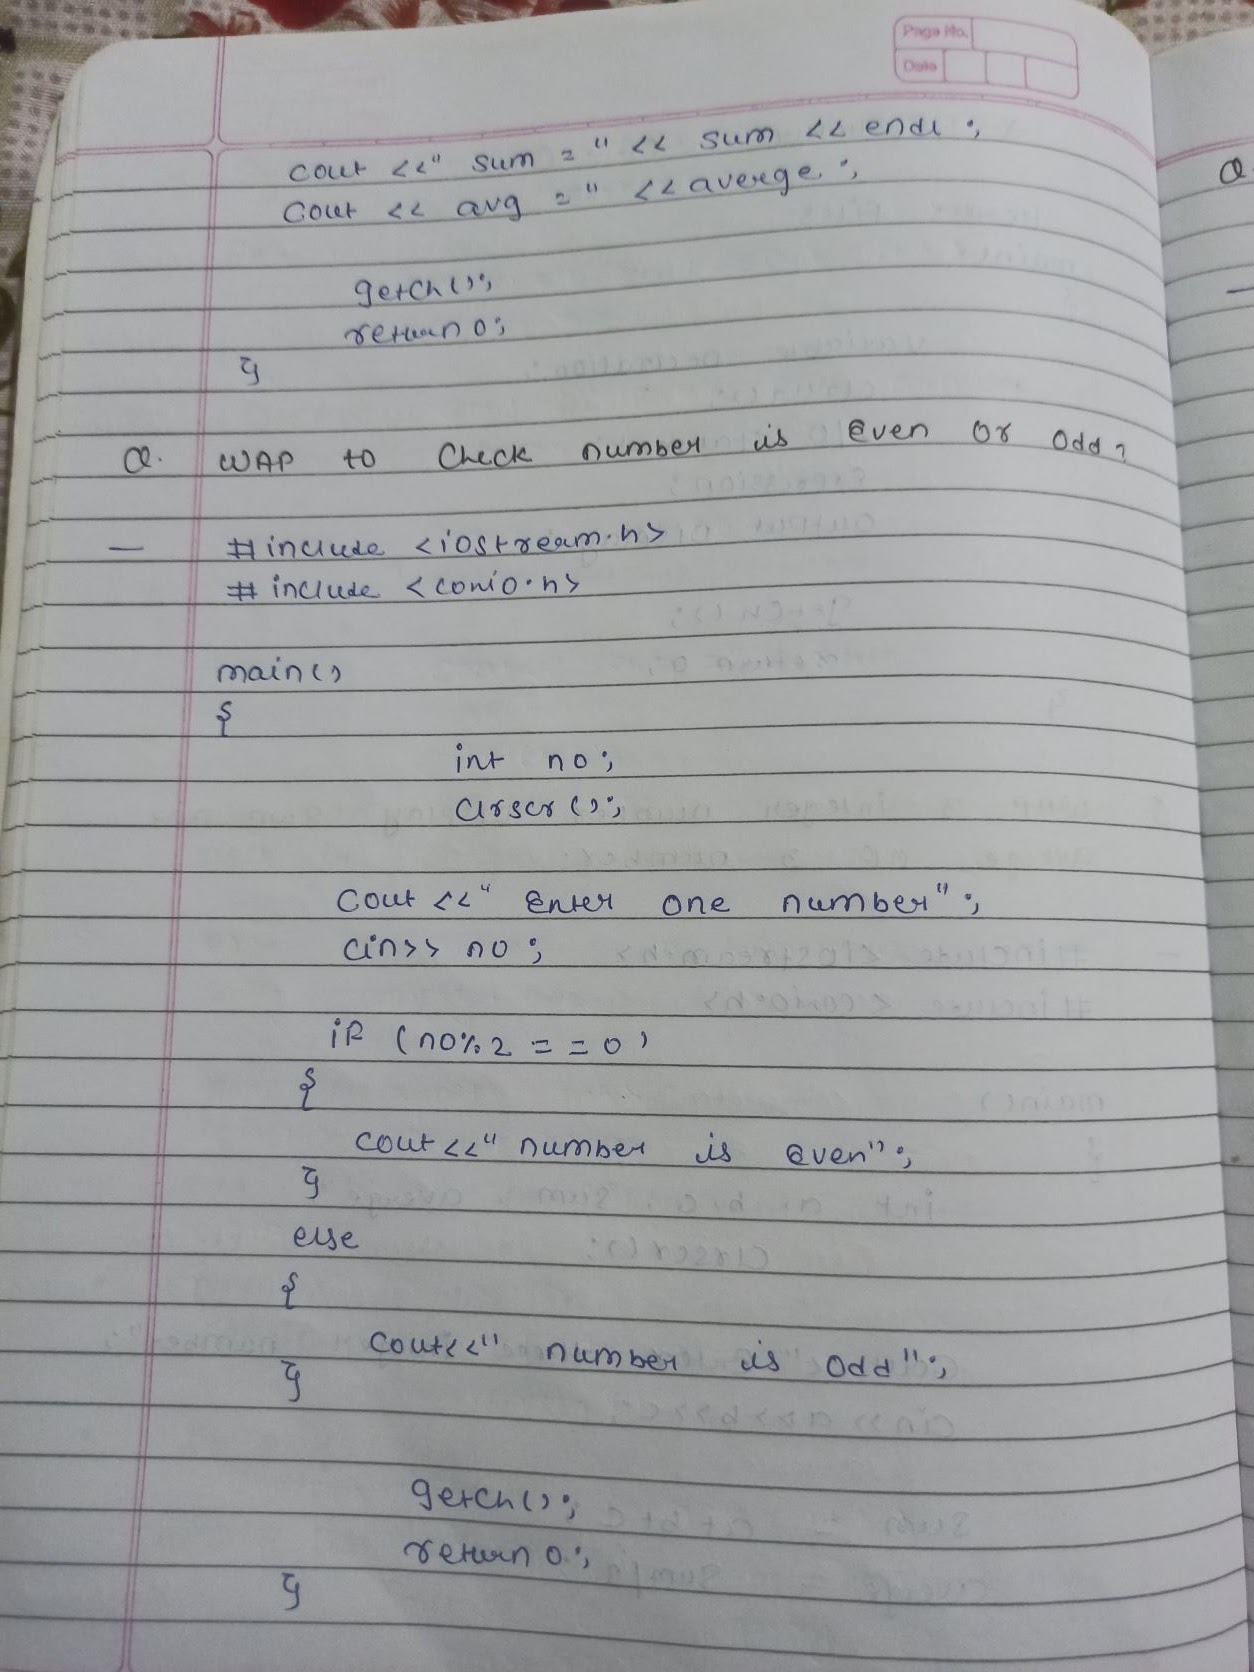 Page No.
Date
cout <<" sum =" << sum << endl ;
cout << avg =" << averge ;
getch();
return 0;
}
Q. WAP to check number is even or odd?
— #include <iostream.h>
#include <conio.h>
main()
{
int no;
clrscr();
cout <<" Enter one number";
cin>> no;
if (no%2 = = 0)
{
cout<<" number is even";
}
else
{
cout<<" number is odd";
}
getch();
return 0;
}
Q
—